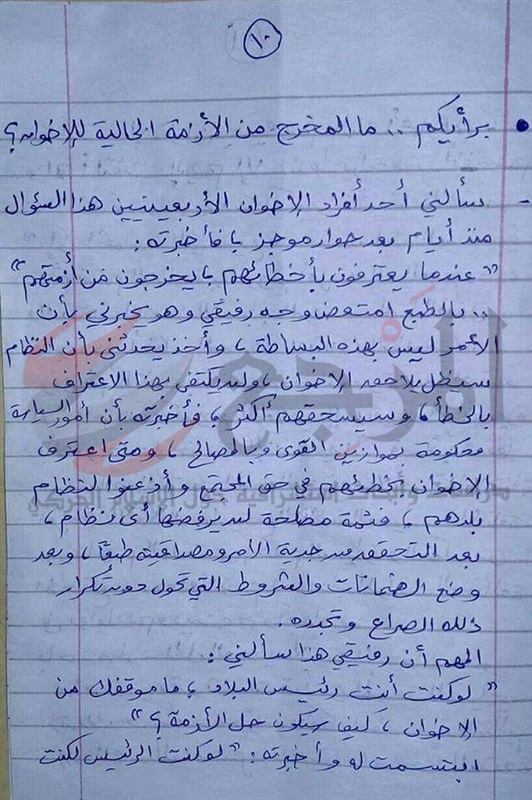 ١٠
• برأيكم .. ما المخرج من الأزمة الحالية للإخوان؟
- سألني أحد أفراد الإخوان الأربعينيين هذا السؤال
منذ أيام بعد حوار موجز، فأخبرته:
"عندما يعترفون بأخطائهم، يخرجون من أزمتهم"
.. بالطبع امتعض وجه رفيقي وهو يخبرني بأن
الأمر ليس بهذه البساطة، وأخذ يحدثني بأن النظام
سيظل يلاحق الإخوان، ولن يكتفي بهذا الاعتراف
بالخطأ، وسيسحقهم أكثر، فأخبرته بأن أمور السياسة
محكومة بموازين القوى وبالمصالح، ومتى اعترف
الإخوان بخطئهم في حق المجتمع وأذعنوا لنظام
بلدهم، فثمة مصلحة لن يرفضها أي نظام،
بعد التحقق من جدية الأمر ومصداقيته طبعًا، وبعد
وضع الضمانات والشروط التي تحول دون تكرار
ذلك الصراع وتجدده.
المهم أن رفيقي هذا سألني:
"لو كنت أنت رئيس البلاد، ما موقفك من
الإخوان، كيف سيكون حل الأزمة؟"
ابتسمت له وأخبرته: "لو كنت الرئيس لكنت
المرجع